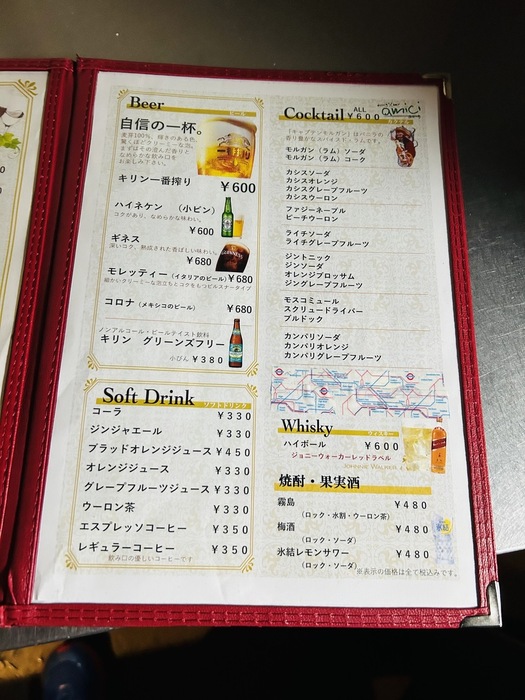 Beer
ビール
自信の一杯。
麦芽100%、輝きのある色、
驚くほどクリーミーな泡。
まずはその澄んだ香りと
なめらかな飲み口を
お楽しみ下さい。
キリン一番搾り
¥600
ハイネケン (小ビン)
コクがあり、なめらかな味わい。
¥600
ギネス
深いコク、熟成された香ばしい味わい。
¥680
モレッティー (イタリアのビール) ¥680
細かいクリーミーな泡立ちとコクをもつピルスナータイプ
コロナ (メキシコのビール) ¥680
ノンアルコール・ビールテイスト飲料
キリン グリーンズフリー
小びん ¥380
Soft Drink
ソフトドリンク
コーラ ¥330
ジンジャエール ¥330
ブラッドオレンジジュース ¥450
オレンジジュース ¥330
グレープフルーツジュース ¥330
ウーロン茶 ¥330
エスプレッソコーヒー ¥350
レギュラーコーヒー ¥350
飲み口の優しいコーヒーです
Cocktail ALL ¥600
カクテル
amici
「キャプテンモルガン」はバニラの
香り豊かなスパイストラムです。
モルガン (ラム) ソーダ
モルガン (ラム) コーク
カシスソーダ
カシスオレンジ
カシスグレープフルーツ
カシスウーロン
ファジーネーブル
ピーチウーロン
ライチソーダ
ライチグレープフルーツ
ジントニック
ジンソーダ
オレンジブロッサム
ジングレープフルーツ
モスコミュール
スクリュードライバー
ブルドック
カンパリソーダ
カンパリオレンジ
カンパリグレープフルーツ
Whisky
ウィスキー
ハイボール ¥600
ジョニーウォーカーレッドラベル
JOHNNIE WALKER
焼酎・果実酒
霧島 ¥480
(ロック・水割・ウーロン茶)
梅酒 ¥480
(ロック・ソーダ)
氷結レモンサワー ¥480
(ロック・ソーダ)
※表示の価格は全て税込みです。